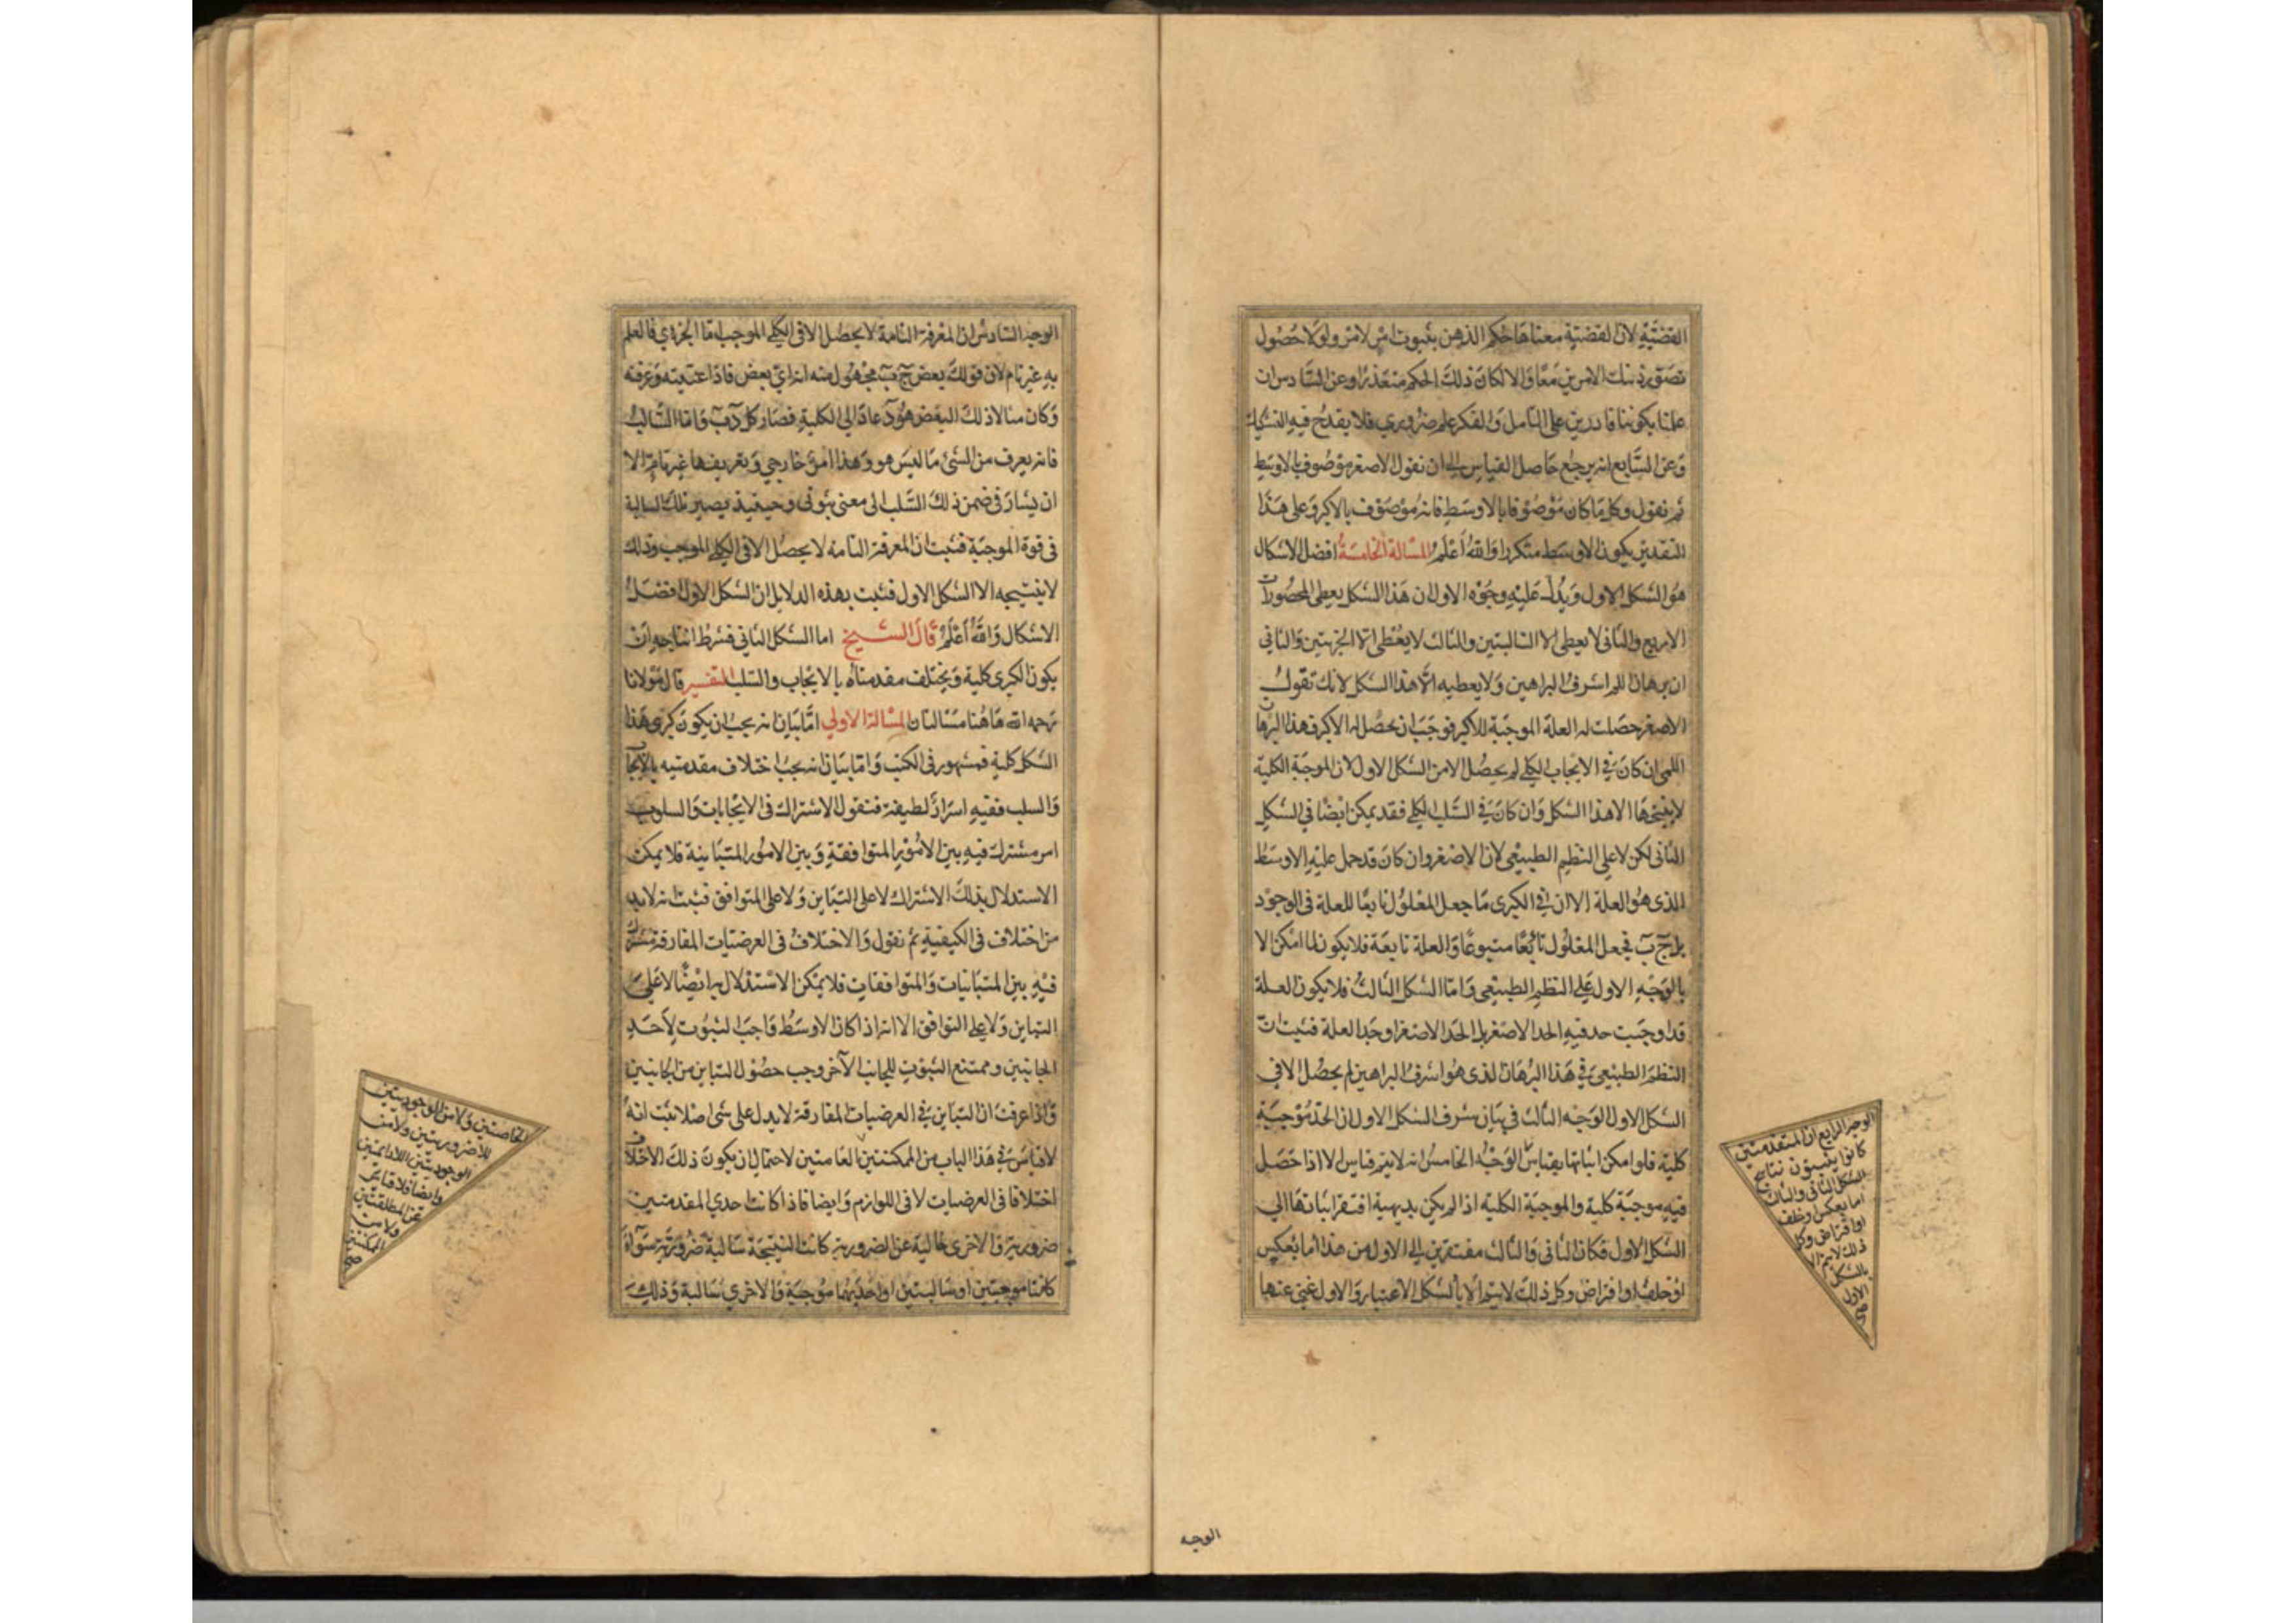 القضية لان القضية معناها حكم الذهن بثبوت امر لامر ولولا حصول
تصور ذينك الامرين معا والا لكان ذلك الحكم متعذرا وعن السادس ان
علمنا بكوننا قادرين على التامل والفكر علم ضروري فلا يقدح فيه التشكيك
وعن السابع انه يرجع حاصل القياس الى ان نقول الاصغر موصوف بالاوسط
ثم نقول وكل ما كان موصوفا بالاوسط فانه موصوف بالاكبر وعلى هذا
التقدير يكون الاوسط متكررا والله أعلم المسالة الخامسة افضل الاشكال
هو الشكل الاول ويدل عليه وجوه الاول ان هذا الشكل يعطى المحصورات
الاربع والثانى لا يعطى الا السالبتين والثالث لا يعطى الا الجزئيتين والثاني
ان برهان اللم اشرف البراهين ولا يعطيه الا هذا الشكل لانك تقول
الاصغر حصلت له العلة الموجبة للاكبر فوجب ان يحصل له الاكبر فهذا البرهان
اللمى ان كان في الايجاب الكلي لم يحصل الا من الشكل الاول لان الموجبة الكلية
لا ينتجها الا هذا الشكل وان كان في السلب الكلي فقد يمكن ايضا في الشكل
الثانى لكن لا على النظم الطبيعي لان الاصغر وان كان قد حمل عليه الاوسط
الذى هو العلة الا ان في الكبرى ما جعل المعلول تابعا للعلة فى الوجود
بل ج ب فجعل المعلول متبوعا والعلة تابعة فلا يكون لما امكن الا
بالوجه الاول على النظم الطبيعي واما الشكل الثالث فلا يكون العلة
قد اوجبت حد فيه الحد الاصغر بل الحد الاصغر اوجد العلة فثبت ان
النظم الطبيعى في هذا البرهان الذى هو اشرف البراهين لم يحصل الا في
الشكل الاول الوجه الثالث في بيان شرف الشكل الاول ان الحد موجبة
كلية فلو امكن اثباتها بقياس الوجه الخامس انه لا يتم قياس الا اذا حصل
فيه موجبة كلية والموجبة الكلية اذا لم يكن بديهية افتقر اثباتها الى
الشكل الاول فكان الثانى والثالث مفتقرين الى الاول من هذا اما بعكس
او خلف او افتراض وكل ذلك لا يتم الا بالشكل الاعتبار والاول غني عنها
الوجه الرابع ان المتقدمين
كانوا يثبتون نتايج
الشكل الثانى والثالث
اما بعكس او خلف
او افتراض وكل
ذلك لا يتم الا
بالشكل
الاول
صح
الوجه
الوجه السادس ان المعرفة التامة لا يحصل الا فى الكلي الموجب اما الجزءي فالعلم
به غير تام لان قولك بعض ج ب مجهول منه انه اي بعض فاذا عنيته وعرفته
وكان مثلا ذلك البعض هو د عاد الى الكلية فصار كل د ب واما السالب
فانه يعرف من الشئ ما ليس هو وهذا امر خارجي وتعريفها غير تام الا
ان يشار في ضمن ذلك السلب الى معنى ثبوتى وحينيذ يصير تلك السالبة
فى قوة الموجبة فثبت ان المعرفة التامة لا يحصل الا فى الكلي الموجب وذلك
لا ينتيجه الا الشكل الاول فثبت بهذه الدلايل ان الشكل الاول افضل
الاشكال والله أعلم قال الشيخ اما الشكل الثاني فشرط انتاجه ان
يكون الكبرى كلية ويختلف مقدمتاه بالايجاب والسلب التفسير قال مولانا
رحمه الله هاهنا مسالتان المسالة الاولي اما بيان انه يجب ان يكون كبرى هذا
الشكل كلية فمشهور فى الكتب واما بيان انه يجب اختلاف مقدمتيه بالايجاب
والسلب ففيه اسرار لطيفة فنقول الاشتراك فى الايجابات والسلوب
امر مشترك فيه بين الامور المتوافقة وبين الامور المتباينة فلا يمكن
الاستدلال بذلك الاشتراك لا على التباين ولا على المتوافق فثبت انه لا بد
من اختلاف فى الكيفية ثم نقول والاختلاف فى العرضيات المفارقة مشترك
فيه بين المتباينات والمتوافقات فلا يمكن الاستدلال به ايضا لا على
التباين ولا على التوافق الا انه اذا كان الاوسط واجب الثبوت لأحد
الجانبين وممتنع الثبوت للجانب الآخر وجب حصول التباين من الجانبين
واذا عرفت ان التباين في العرضيات المفارقة لا يدل على شى اصلا ثبت انه
لا قياس في هذا الباب من الممكنتين العامتين لاحتمال ان يكون ذلك الاختلاف
اختلافا فى العرضيات لا فى اللوازم وايضا فاذا كانت احدي المقدمتين
ضرورية والاخرى خالية عن الضرورية كانت النتيجة سالبة ضرورية سواء
كانتا موجبتين او سالبتين او احديهما موجبة والاخري سالبة وذلك
الخاصتين ولا من الوجوديتين
اللاضروريتين ولا من
الوجوديتين اللادايمتين
وايضا فلا قياس
عن المطلقتين
ولا من
الممكنتين
صح